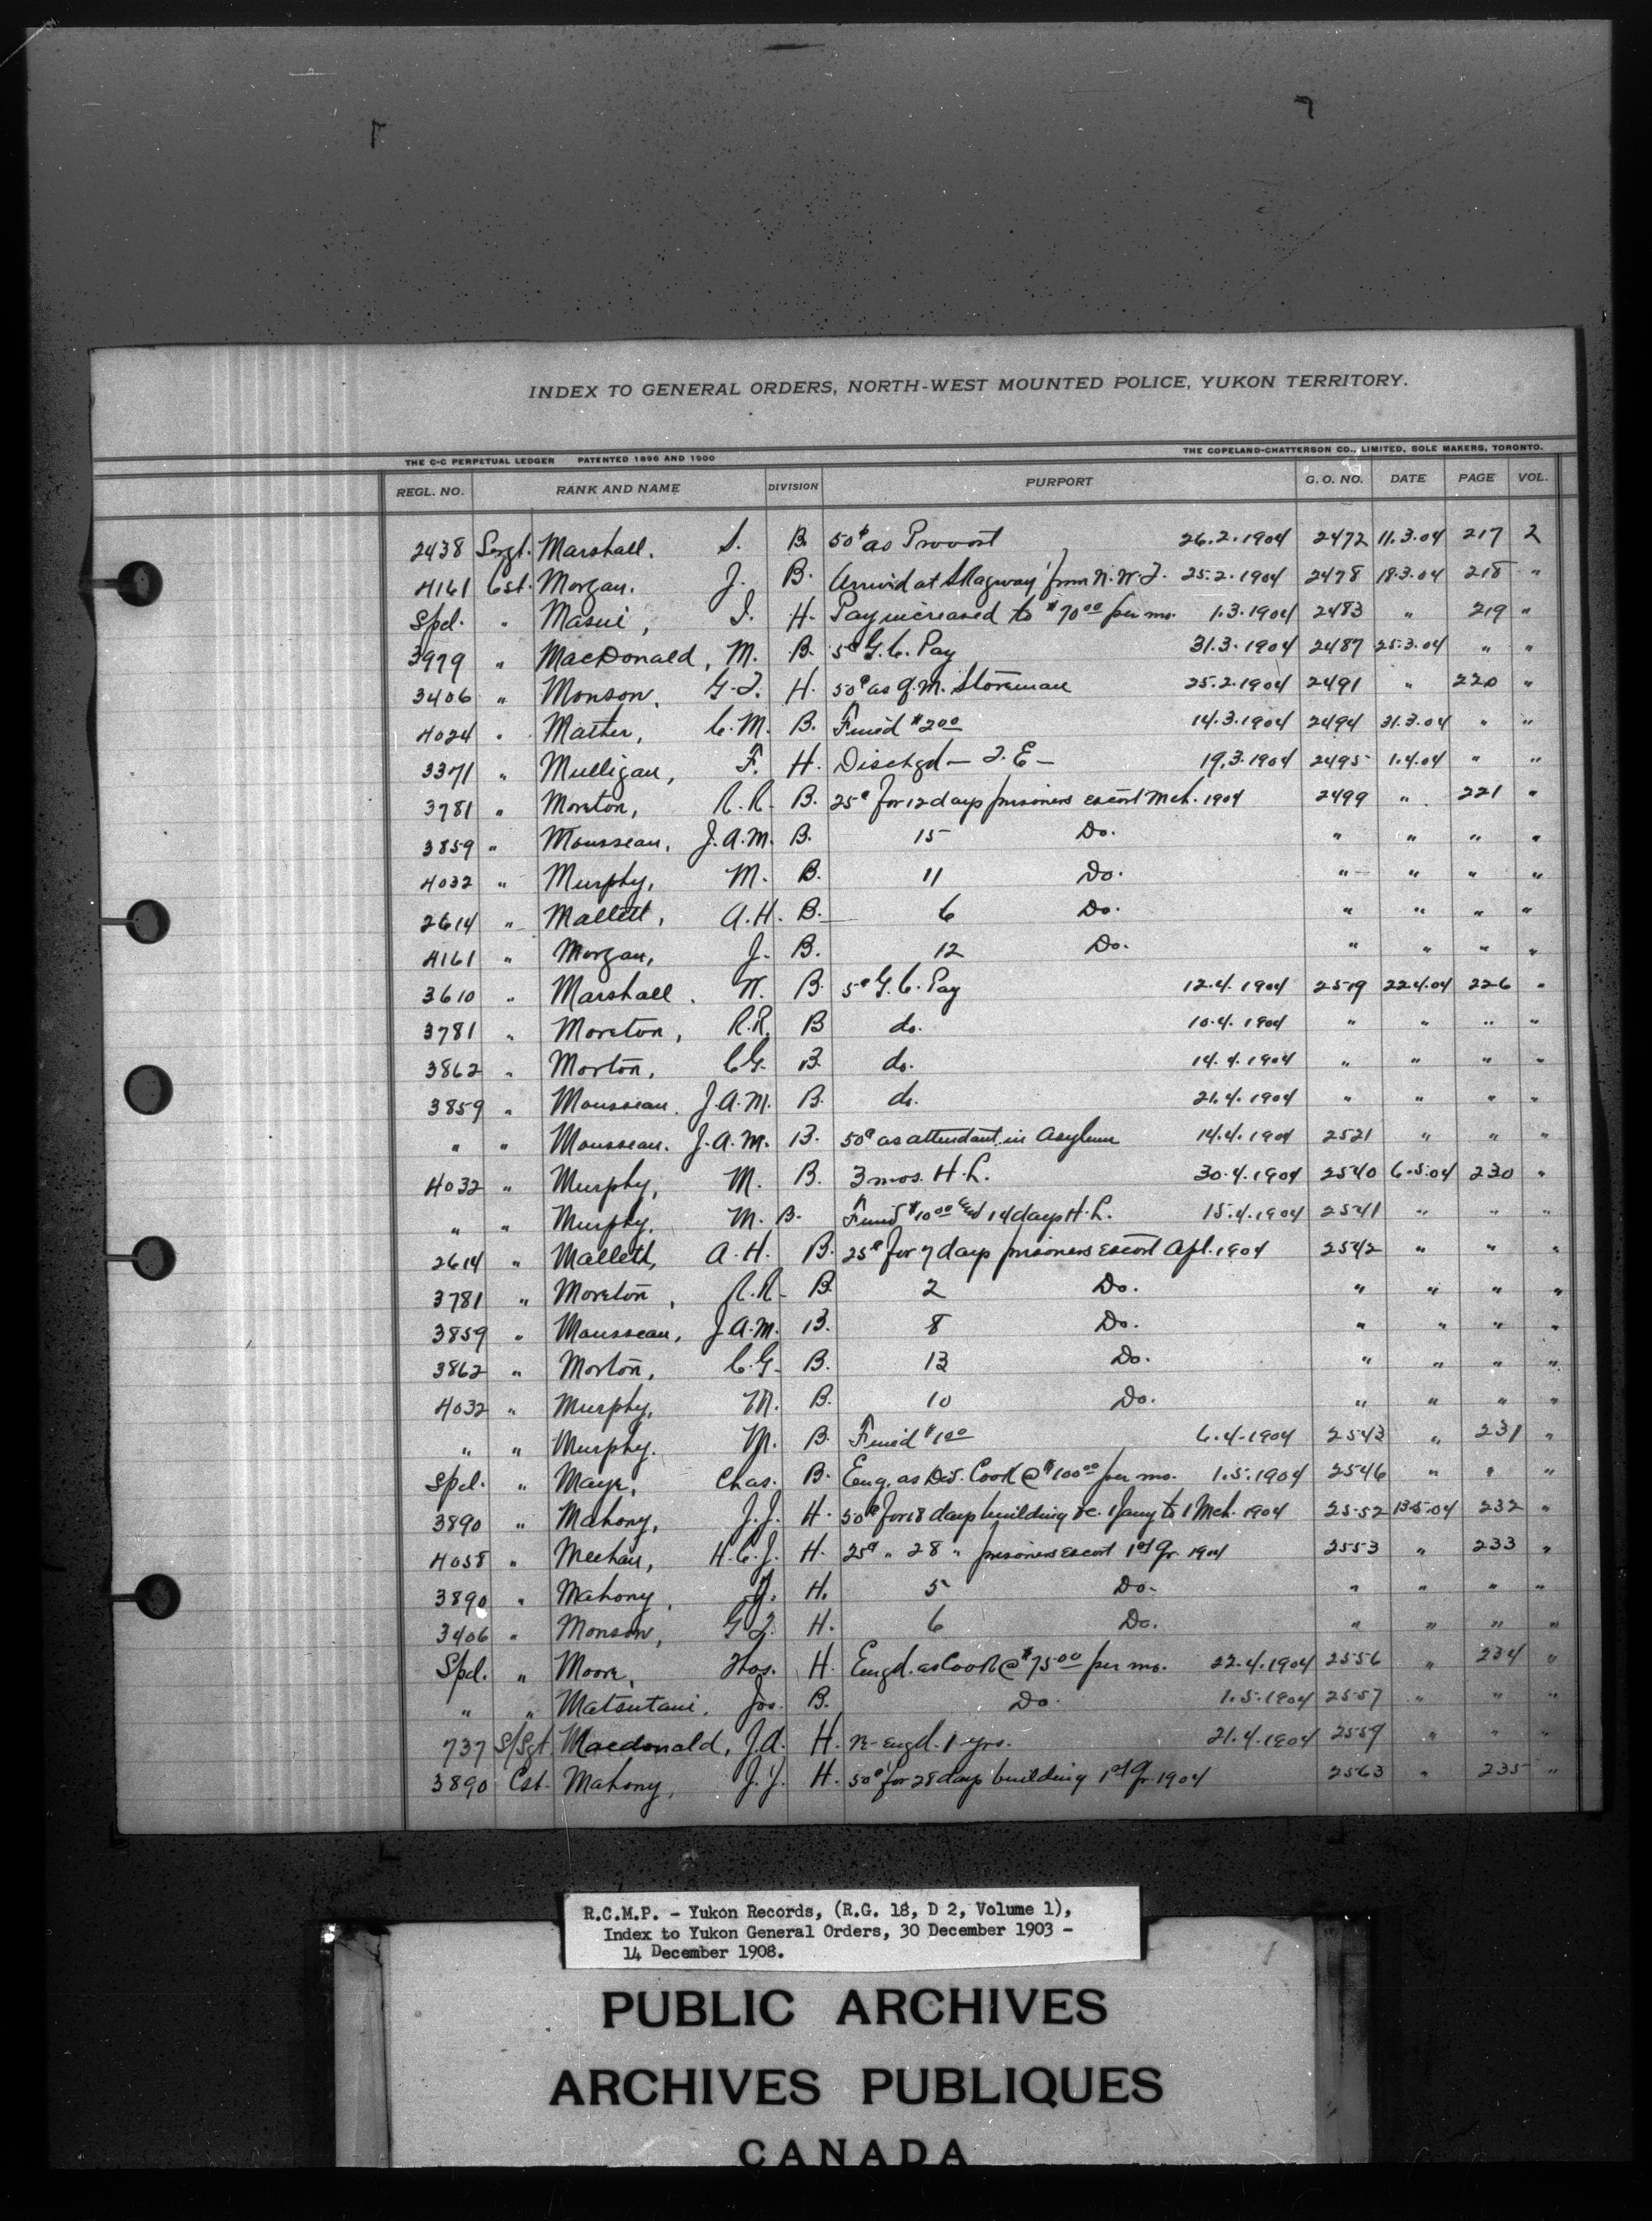 INDEX TO GENERAL ORDERS, NORTH-WEST MOUNTED POLICE, YUKON TERRITORY.
THE C-C PERPETUAL LEDGER PATENTED 1896 AND 1900 THE COPELAND-CHATTERSON CO., LIMITED, SOLE MAKERS, TORONTO.
REGL. NO. RANK AND NAME DIVISION PURPORT G. O. NO. DATE PAGE VOL.
2438 Sergt. Marshall. S. B. 50¢ as Provost 26.2.1904 2472 11.3.04 217 2
4161 Cst. Morgan. J. B. Arrived at Skagway from N.W.T. 25.2.1904 2478 18.3.04 218 "
Spcl. " Masui, I. H. Pay increased to $70 00 per mo. 1.3.1904 2483 " 219 "
3979 " MacDonald, M. B. 5¢ G.C. Pay 31.3.1904 2487 25.3.04 " "
3406 " Monson, G.T. H. 50¢ as Q.M. Storeman 25.2.1904 2491 " 220 "
4024 " Mather, C.M. B. Fined $2 00 14.3.1904 2494 31.3.04 " "
3371 " Mulligan, F. H. Dischgd - T.E - 19.3.1904 2495 1.4.04 " "
3781 " Moreton, R.R. B. 25¢ for 12 days prisoners escort Mch. 1904 2499 " 221 "
3859 " Mousseau, J.A.M. B. 15 Do. " " " "
4032 " Murphy, M. B. 11 Do. " " " "
2614 " Mallett, A.H. B. 6 Do. " " " "
4161 " Morgan, J. B. 12 Do. " " " "
3610 " Marshall. W. B. 5¢ G.C. Pay 12.4.1904 2519 22.4.04 226 "
3781 " Moreton, R.R. B do. 10.4.1904 " " " "
3862 " Morton, C.G. B. do. 14.4.1904 " " " "
3859 " Mousseau. J.A.M. B. do. 21.4.1904 " " " "
" " Mousseau. J.A.M. B. 50¢ as attendant in Asylum 14.4.1904 2521 " " "
4032 " Murphy, M. B. 3 mos. H.L. 30.4.1904 2540 6.5.04 230 "
" " Murphy, M. B. Fined $10 00 and 14 days H.L. 15.4.1904 2541 " " "
2614 " Mallett, A.H. B. 25¢ for 7 days prisoners escort Apl. 1904 2542 " " "
3781 " Moreton, R.R. B. 2 Do. " " " "
3859 " Mousseau, J.A.M. B. 8 Do. " " " "
3862 " Morton, C.G. B. 13 Do. " " " "
4032 " Murphy, M. B. 10 Do. " " " "
" " Murphy. M. B. Fined $1 00 6.4.1904 2543 " 231 "
Spcl. " Maye, Chas. B. Eng. as Div. Cook @ $100 00 per mo. 1.5.1904 2546 " " "
3890 " Mahony, J.J. H. 50¢ for 18 days building &c. 1 Jany to 1 Mch. 1904 2552 13.5.04 232 "
4058 " Meehan, H.C.J. H. 25¢ " 28 " prisoners escort 1st Qr. 1904 2553 " 233 "
3890 " Mahony, J. H. 5 Do. " " " "
3406 " Monson, G.T. H. 6 Do. " " " "
Spcl. " Moore, Thos. H. Engd. as Cook @ $75 00 per mo. 22.4.1904 2556 " 234 "
" " Matsutani, Jos. B. Do. 1.5.1904 2557 " " "
737 S/Sgt. Macdonald, J.A. H. Re-engd. 1 yrs. 21.4.1904 2559 " " "
3890 Cst. Mahony, J.J. H. 50¢ for 28 days building 1st Qr. 1904 2563 " 235 "
R.C.M.P. - Yukon Records, (R.G. 18, D 2, Volume 1),
Index to Yukon General Orders, 30 December 1903 -
14 December 1908.
PUBLIC ARCHIVES
ARCHIVES PUBLIQUES
CANADA